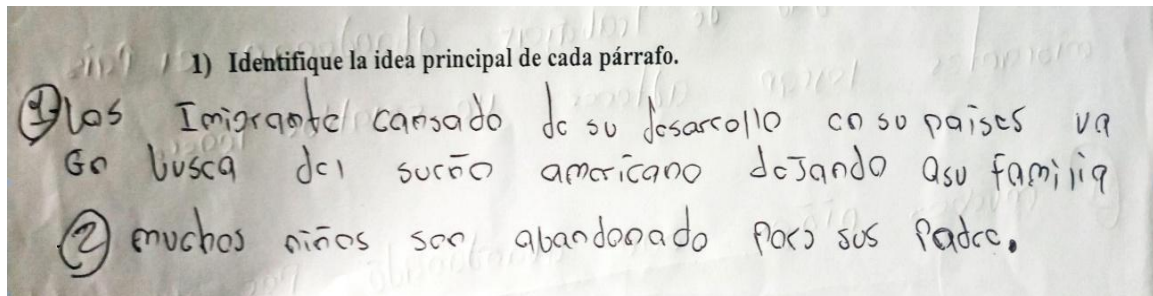 1) Identifique la idea principal de cada párrafo.
1) las Imigrante cansado de su desarollo en su paises va
En busca del sueño americano deJando asu familia
2) muchos niños son abandonado por sus Padre.